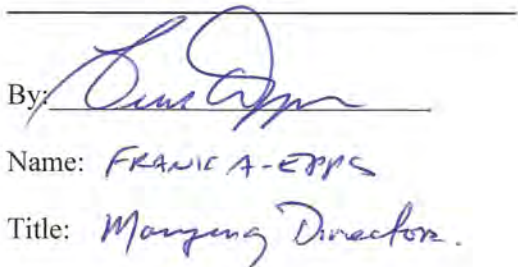 By:
Name: FRANK A. EPPS
Title: Managing Director.